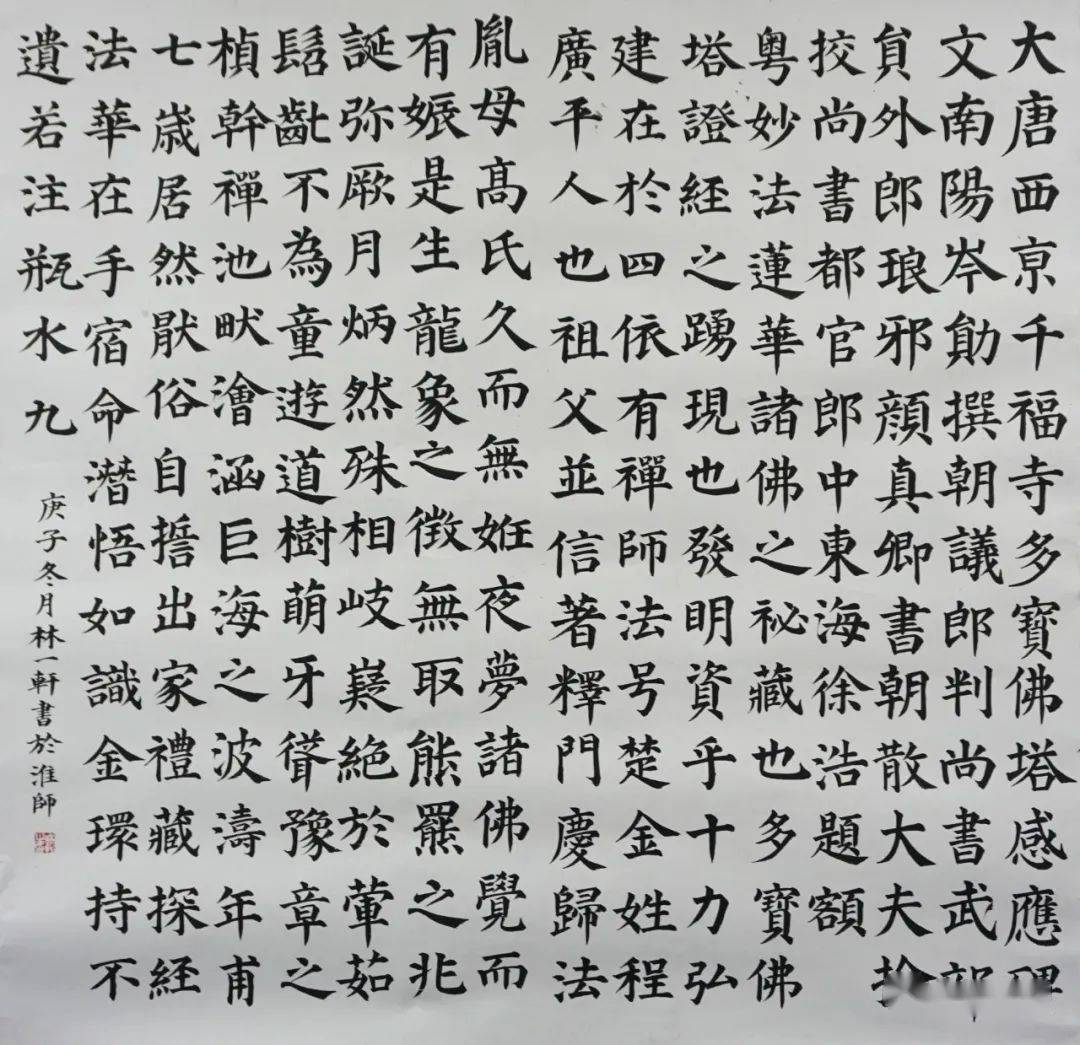 大唐西亰千福寺多寶佛塔感應碑
文南陽岑勛撰朝議郎判尚書武部
員外郎琅邪顏真卿書朝散大夫撿
挍尚書都官郎中東海徐浩題額
粵妙法蓮華諸佛之祕藏也多寶佛
塔證經之踴現也發明資乎十力弘
建在於四依有禪師法号楚金姓程
廣平人也祖父並信著釋門慶歸法
胤母髙氏久而無姙夜夢諸佛覺而
有娠是生龍象之徵無取熊羆之兆
誕弥厥月炳然殊相岐嶷絕於葷茹
髫齔不為童遊道樹萌牙聳豫章之
楨幹禪池畎澮涵巨海之波濤年甫
七歲居然猒俗自誓出家禮藏探經
法華在手宿命潛悟如識金環持不
遺若注瓶水九
庚子冬月林一軒書於淮師